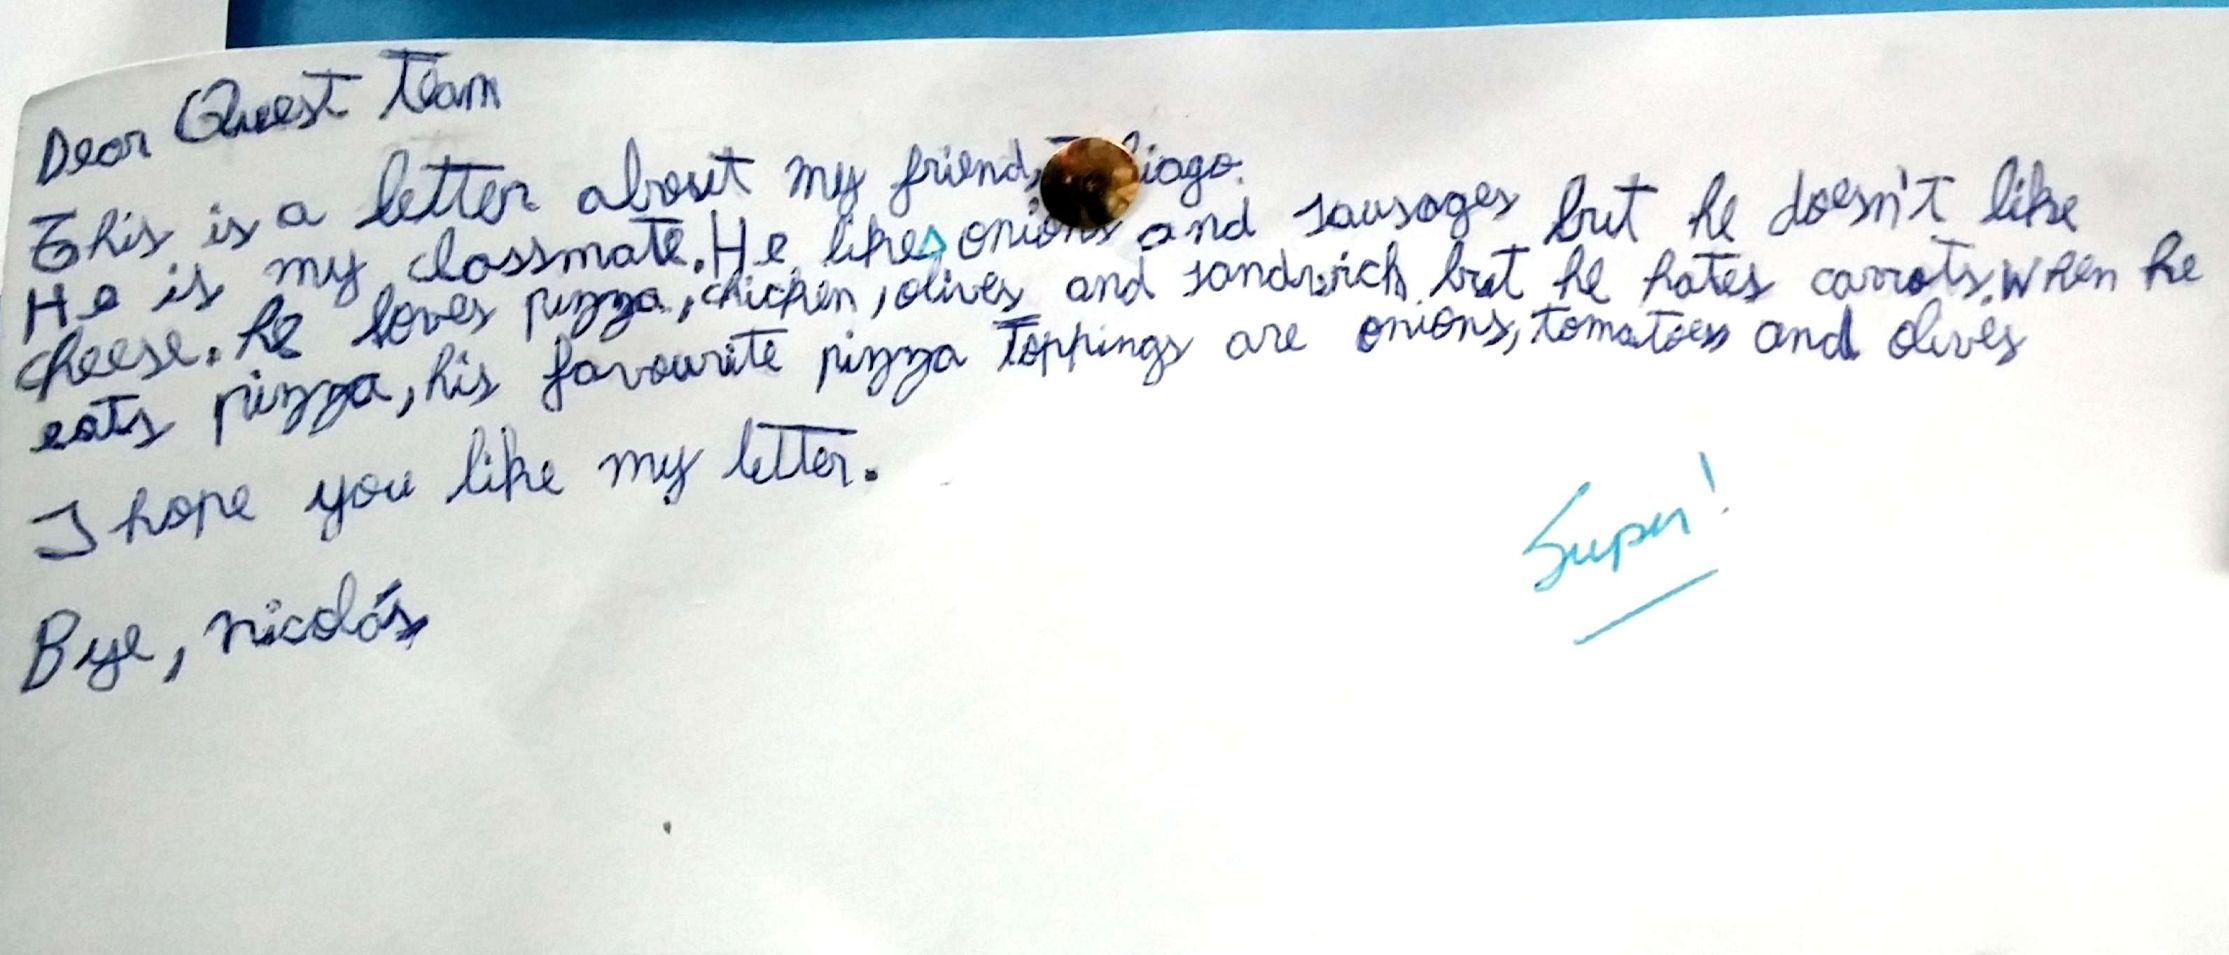 Dear Quest Team
This is a letter about my friend,
He is my classmate. He likes onions and sausages but he doesn't like
cheese. he loves pizza, chicken, olives and sandwich but he hates carrots. When he
eats pizza, his favourite pizza toppings are onions, tomatoes and olives
I hope you like my letter.
Bye, nicolás
Super!